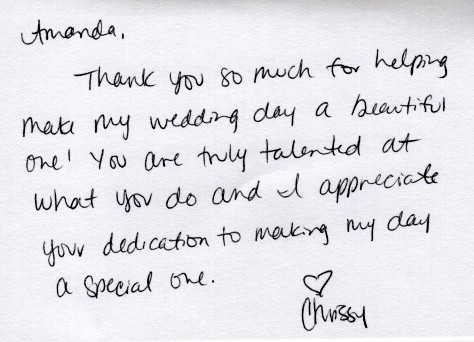 Amanda,
Thank you so much for helping
make my wedding day a beautiful
one! You are truly talented at
what you do and I appreciate
your dedication to making my day
a special one.
♡
Chrissy